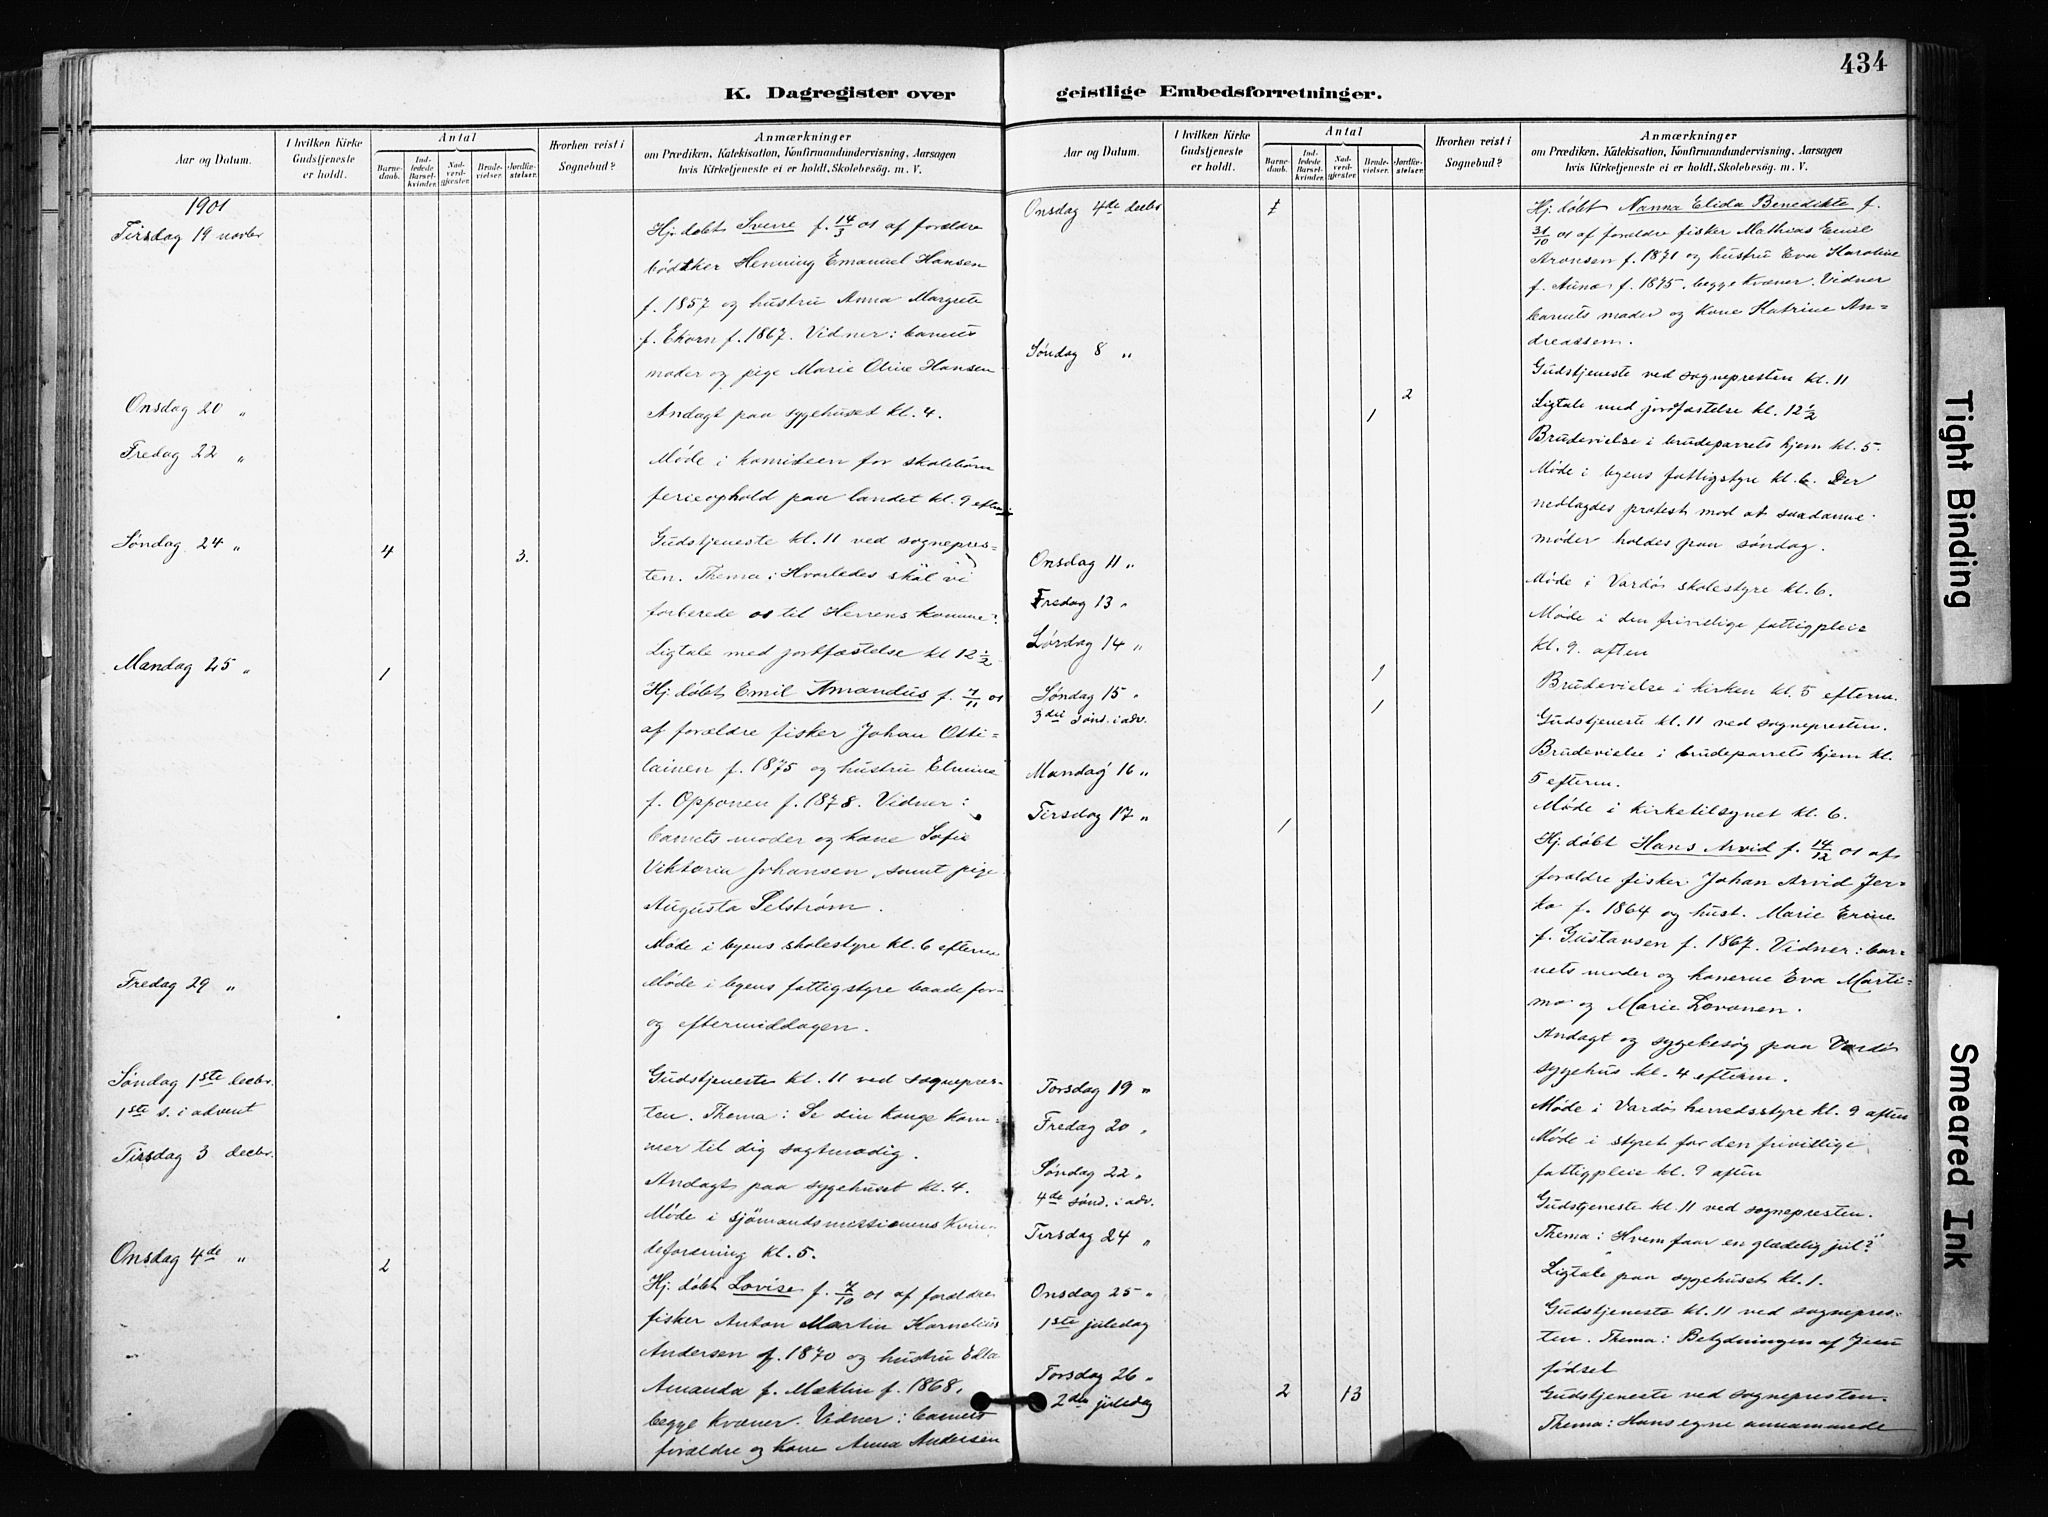 434
K. Dagregister over geistlige Embedsforretninger.
Aar og Datum.
I hvilken Kirke Gudstjeneste er holdt.
Antal
Barnedaab.
Indledede Barselkvinder.
Nadverdgjester.
Brudevielser.
Jordfæstelser.
Hvorhen reist i Sognebud?
Anmærkninger
om Prædiken, Katekisation, Konfirmandundervisning, Aarsagen
hvis Kirketjeneste ei er holdt, Skolebesøg, m. V.
1901
Tirsdag 19 novbr
Hj. døbt Sverre f. 14/3 01 af forældre
bødtker Henning Emanuel Hansen
f. 1857 og hustru Anna Margrete
f. Ekorn f. 1867. Vidner: barnets
moder og pige Marie Oline Hansen
Onsdag 20 „
Andagt paa sygehuset kl. 4.
Fredag 22 „
Møde i komiteen for skolebørns
ferieophold paa landet kl. 9 efterm
Søndag 24 „ 4 3.
Gudstjeneste kl. 11 ved sognepres-
ten. Thema: Hvorledes skal vi
forberede os til Herrens komme?
Ligtale med jordfæstelse kl 12 1/2
Mandag 25 „ 1
Hj. døbt Emil Amandus f. 7/11 01
af forældre fisker Johan Otti-
lainen f. 1875 og hustru Elmina
f. Opponen f. 1878. Vidner:
barnets moder og kone Sofie
Viktoria Johansen, samt pige
Augusta Selstrøm.
Møde i byens skolestyre kl. 6 efterm
Fredag 29 „
Møde i byens fattigstyre baade for-
og eftermiddagen.
Søndag 1ste decbr.
1ste s. i advent
Gudstjeneste kl. 11 ved sognepres-
ten. Thema: Se din konge kom-
mer til dig sagtmodig.
Tirsdag 3 decbr.
Andagt paa sygehuset kl. 4.
Møde i sjømandsmissionens kvin-
deforening kl. 5.
Onsdag 4de „ 2
Hj. døbt Lovise f. 7/10 01 af forældre
fisker Anton Martin Kornelius
Andersen f. 1870 og hustru Edla
Amanda f. Mæklin f. 1868,
begge kvæner. Vidner: barnets
forældre og kone Anna Andersen
Aar og Datum.
I hvilken Kirke Gudstjeneste er holdt.
Antal
Barnedaab.
Indledede Barselkvinder.
Nadverdgjester.
Brudevielser.
Jordfæstelser.
Hvorhen reist i Sognebud?
Anmærkninger
om Prædiken, Katekisation, Konfirmandundervisning, Aarsagen
hvis Kirketjeneste ei er holdt, Skolebesøg, m. V.
Onsdag 4de decbr 1
Hj. døbt Nanna Elida Benedikte f.
31/10 01 af forældre fisker Mathias Emil
Aronsen f. 1871 og hustru Eva Karoline
f. Auna f. 1875, begge kvæner. Vidner
barnets moder og kone Katrine An-
dreassen.
Søndag 8 „
Gudstjeneste ved sognepresten kl. 11
2 Ligtale med jordfæstelse kl. 12 1/2
1 Brudevielse i brudeparrets hjem kl. 5.
Møde i byens fattigstyre kl. 6. Der
nedlagdes protest mod at saadanne
møder holdes paa søndag.
Onsdag 11 „
Møde i Vardø skolestyre kl. 6.
Fredag 13 „
Møde i den frivillige fattigpleie
kl. 9. aften
Lørdag 14 „ 1
Brudevielse i kirken kl. 5 efterm.
Søndag 15 „ 1
3die sønd. i adv.
Gudstjeneste kl. 11 ved sognepresten.
Brudevielse i brudeparrets hjem kl.
5 efterm.
Mandag 16 „
Møde i kirketilsynet kl. 6.
Tirsdag 17 „ 1
Hj. døbt Hans Arvid f. 14/12 01 af
forældre fisker Johan Arvid Jer-
ko f. 1864 og hust. Marie Erine
f. Gustavsen f. 1867. Vidner: bar-
nets moder og konerne Eva Marti-
mo og Marie Lovonen.
Andagt og sygebesøg paa Vardø
sygehus kl. 4 efterm.
Torsdag 19 „
Møde i Vardø herredsstyre kl. 9 aften
Fredag 20 „
Møde i styret for den frivillige
fattigpleie kl. 9 aften
Søndag 22 „
4de sønd. i adv.
Gudstjeneste kl. 11 ved sognepresten.
Thema: Hvem faar en glædelig jul?"
Tirsdag 24 „
Ligtale paa sygehuset kl. 1.
Onsdag 25 „
1ste juledag
Gudstjeneste kl. 11 ved sognepres-
ten. Thema: Betydningen af Jesu
fødsel
Torsdag 26 „ 2 13
2den juledag
Gudstjeneste ved sognepresten.
Thema: Hans egne annammede
Tight Binding
Smeared Ink